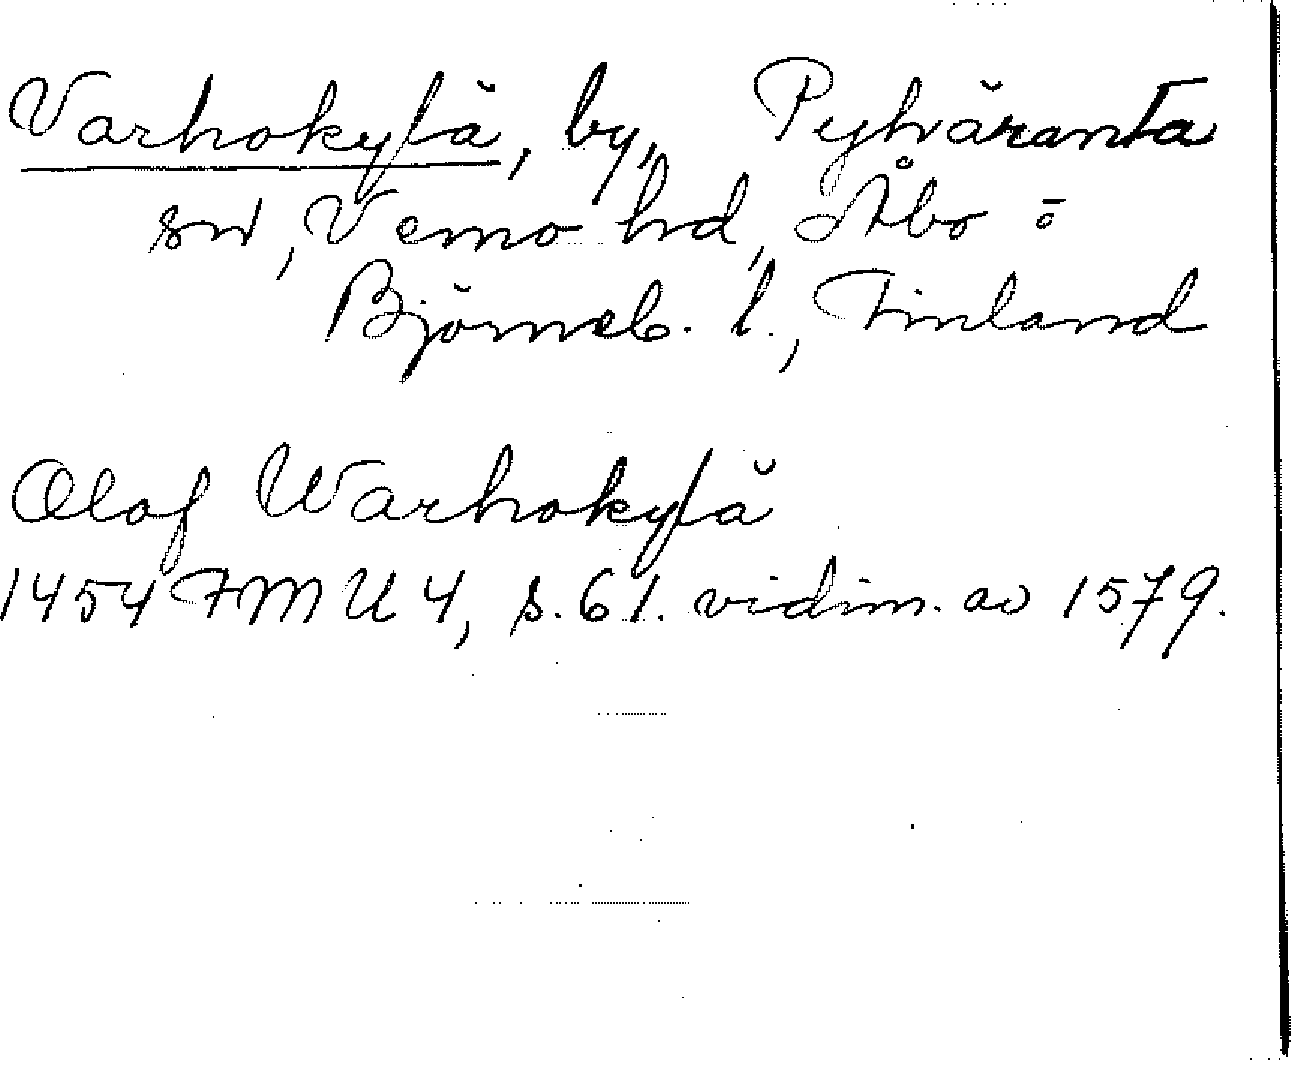 Varhokylä, by, Pyhäranta
sn, Vemo hd, Åbo o
Björneb. l., Finland
Olof Warhokylä
1454 FMU 4, s. 61. vidim. av 1579.